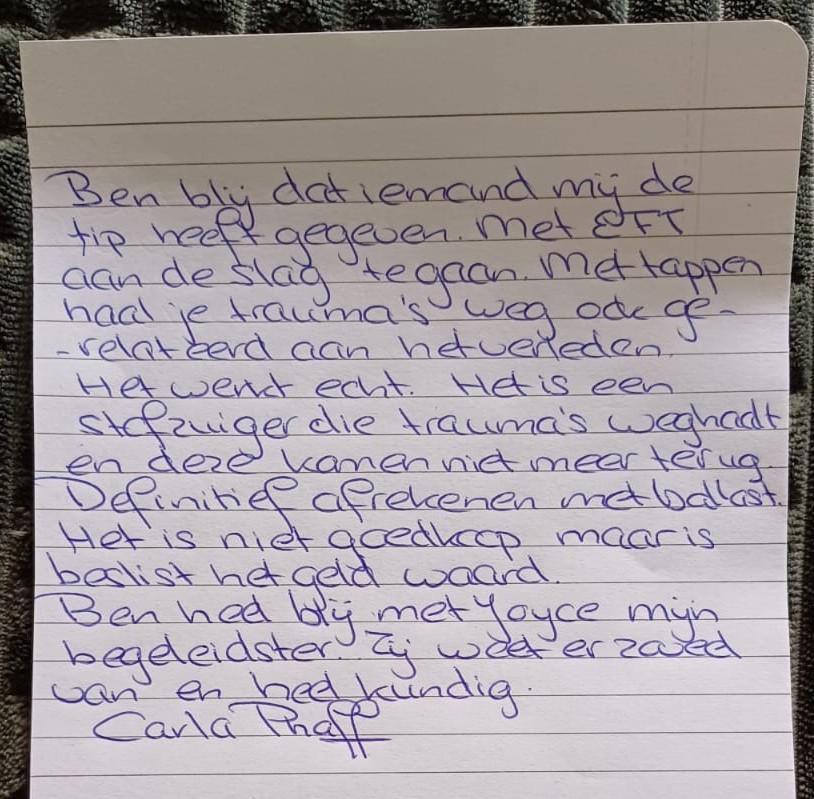 Ben blij dat iemand mij de
tip heeft gegeven. Met EFT
aan de slag te gaan. Met tappen
haal je trauma's weg ook ge-
-relateerd aan het verleden.
Het werkt echt. Het is een
stofzuiger die trauma's weghaalt
en deze komen niet meer terug.
Definitief afrekenen met ballast.
Het is niet goedkoop maar is
beslist het geld waard.
Ben heel blij met Yoyce mijn
begeleidster. Zij weet er zoveel
van en heel kundig.
Carla Phaff